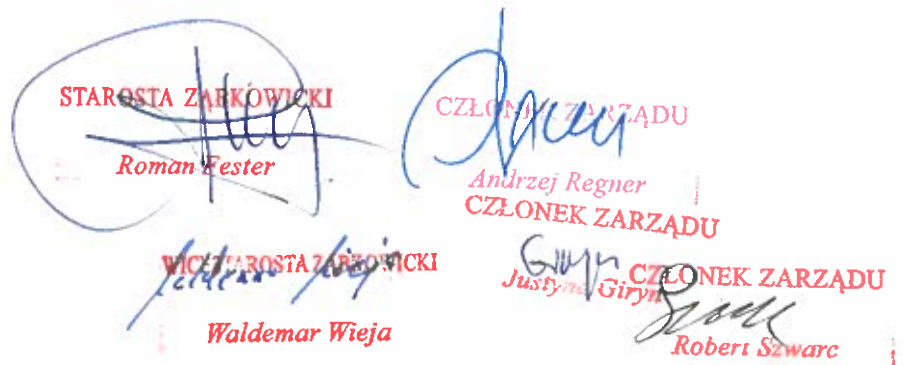 STAROSTA ZĄBKOWICKI
Roman Fester
CZŁONEK ZARZĄDU
Andrzej Regner
CZŁONEK ZARZĄDU
Justyna Giryn
WICESTAROSTA ZĄBKOWICKI
Waldemar Wieja
CZŁONEK ZARZĄDU
Robert Szwarc